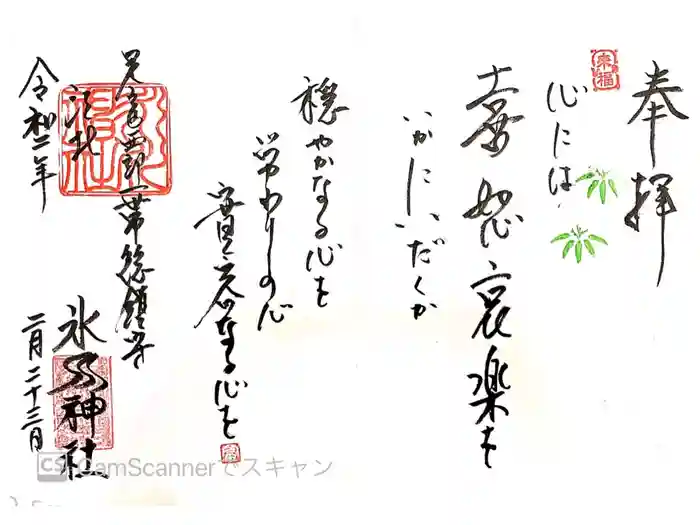 奉拝
来福
心には
喜怒哀楽を
いかにいだくか
穏やかなる心を
労わりの心
寛容なる心を
足立西部一帯総鎮守
江北
氷川神社
令和二年
二月二十三日
CS CamScannerでスキャン